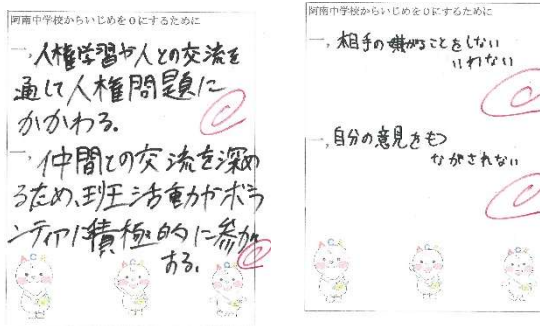 阿南中学校からいじめを0にするために
一、人権学習や人との交流を
通して人権問題に
かかわる。
一、仲間との交流を深め
るため、班活動やボラ
ンティアに積極的に参加
する。
阿南中学校からいじめを0にするために
一、相手の嫌がることをしない
いわない
一、自分の意見をもつ
ながされない